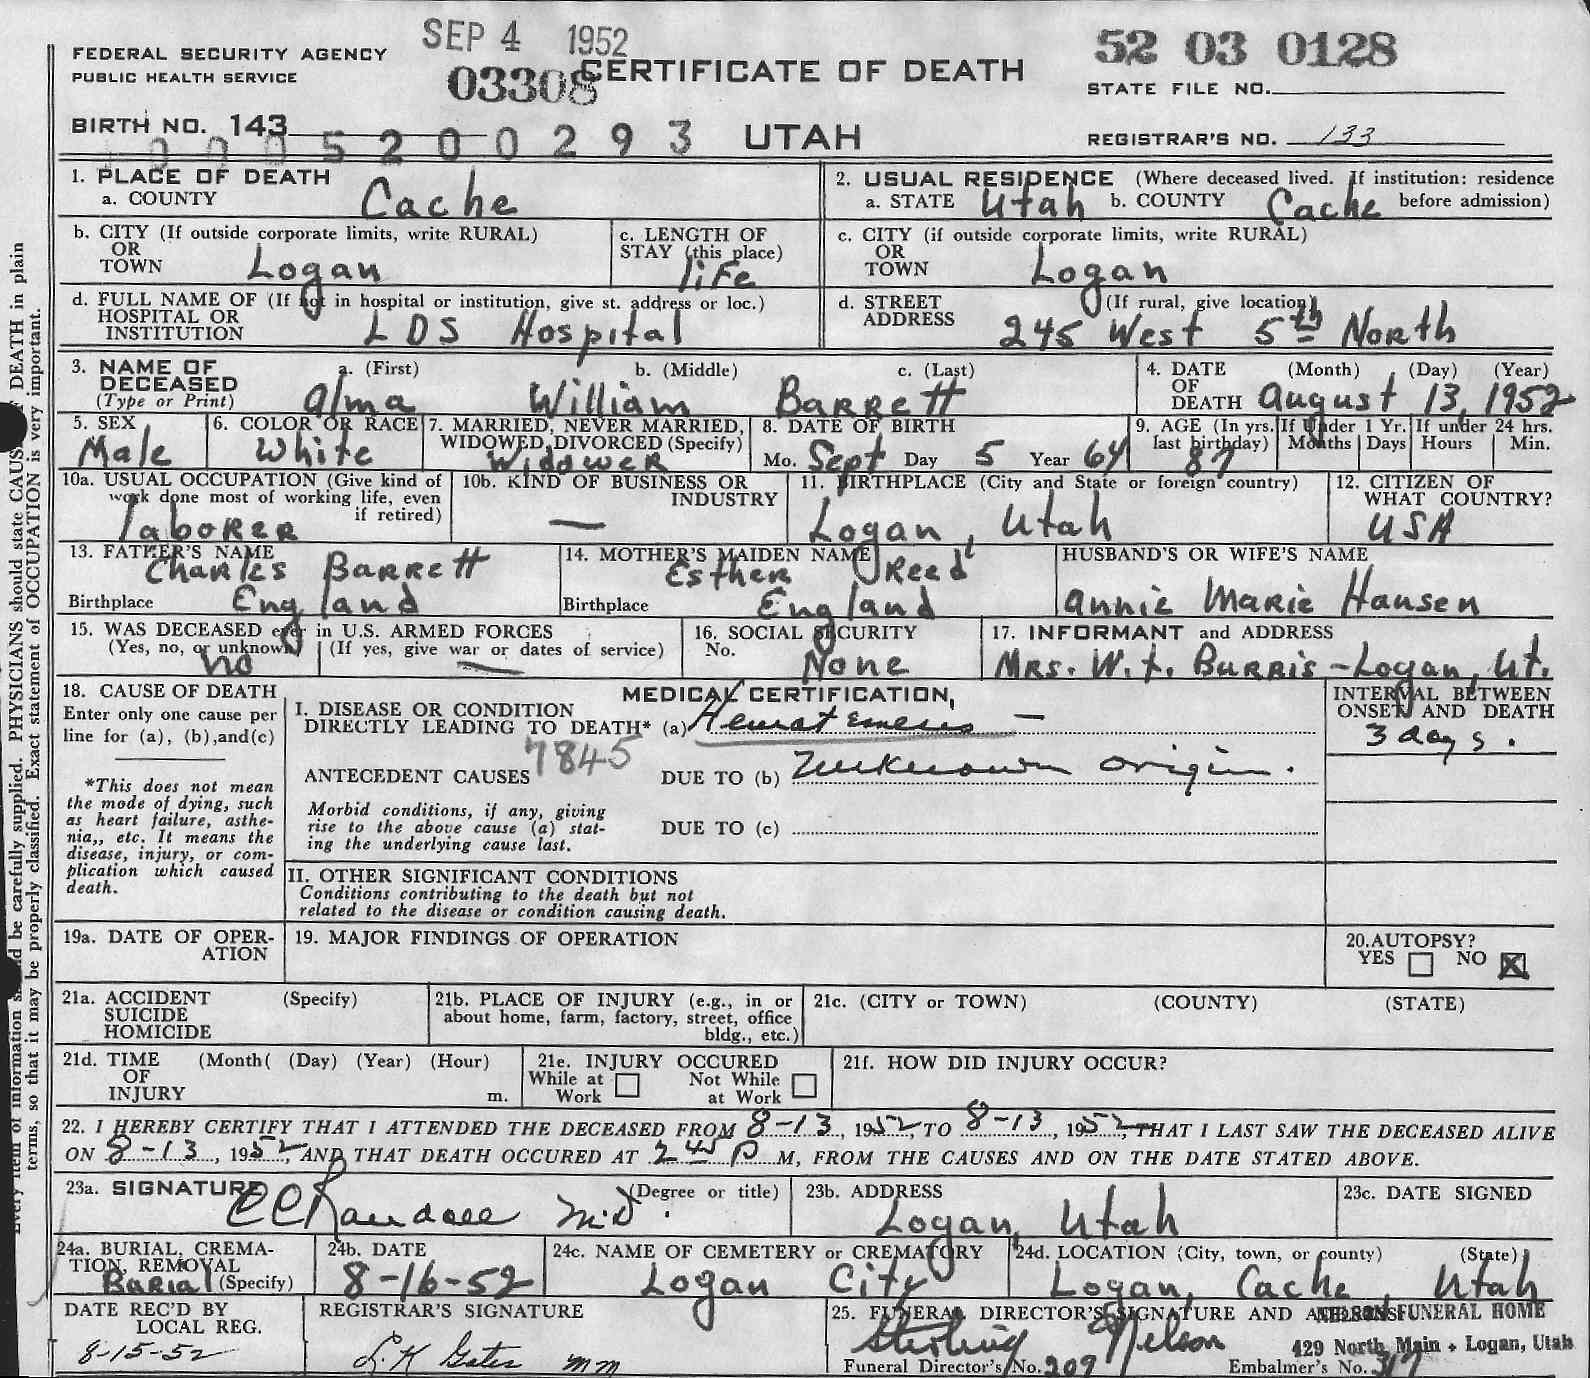 SEP 4 1952
52 03 0128
FEDERAL SECURITY AGENCY
PUBLIC HEALTH SERVICE
03308
CERTIFICATE OF DEATH
STATE FILE NO.
BIRTH NO. 143
0005200293
UTAH
REGISTRAR'S NO. 133
1. PLACE OF DEATH
a. COUNTY Cache
2. USUAL RESIDENCE (Where deceased lived. If institution: residence before admission)
a. STATE Utah b. COUNTY Cache
b. CITY (If outside corporate limits, write RURAL)
OR
TOWN Logan
c. LENGTH OF
STAY (this place)
life
c. CITY (if outside corporate limits, write RURAL)
OR
TOWN Logan
d. FULL NAME OF (If not in hospital or institution, give st. address or loc.)
HOSPITAL OR
INSTITUTION LDS Hospital
d. STREET (If rural, give location)
ADDRESS
245 West 5th North
3. NAME OF
DECEASED
(Type or Print)
a. (First) b. (Middle) c. (Last)
Alma William Barrett
4. DATE (Month) (Day) (Year)
OF
DEATH August 13, 1952
5. SEX
Male
6. COLOR OR RACE
White
7. MARRIED, NEVER MARRIED,
WIDOWED, DIVORCED (Specify)
Widower
8. DATE OF BIRTH
Mo. Sept Day 5 Year 64
9. AGE (In yrs. last birthday)
87
If Under 1 Yr.
Months Days
If under 24 hrs.
Hours Min.
10a. USUAL OCCUPATION (Give kind of
work done most of working life, even
if retired)
laborer
10b. KIND OF BUSINESS OR
INDUSTRY
—
11. BIRTHPLACE (City and State or foreign country)
Logan, Utah
12. CITIZEN OF
WHAT COUNTRY?
USA
13. FATHER'S NAME
Charles Barrett
Birthplace England
14. MOTHER'S MAIDEN NAME
Esther Reed
Birthplace England
HUSBAND'S OR WIFE'S NAME
Annie Marie Hansen
15. WAS DECEASED ever in U.S. ARMED FORCES
(Yes, no, or unknown) (If yes, give war or dates of service)
no —
16. SOCIAL SECURITY
No.
None
17. INFORMANT and ADDRESS
Mrs. W. L. Burris - Logan, Ut.
18. CAUSE OF DEATH
Enter only one cause per
line for (a), (b),and(c)
*This does not mean
the mode of dying, such
as heart failure, asthe-
nia,, etc. It means the
disease, injury, or com-
plication which caused
death.
MEDICAL CERTIFICATION
I. DISEASE OR CONDITION
DIRECTLY LEADING TO DEATH* (a) Hematemesis —
7845
ANTECEDENT CAUSES
DUE TO (b) Unknown origin.
Morbid conditions, if any, giving
rise to the above cause (a) stat-
ing the underlying cause last.
DUE TO (c)
INTERVAL BETWEEN
ONSET AND DEATH
3 days.
II. OTHER SIGNIFICANT CONDITIONS
Conditions contributing to the death but not
related to the disease or condition causing death.
19a. DATE OF OPER-
ATION
19. MAJOR FINDINGS OF OPERATION
20.AUTOPSY?
YES NO X
21a. ACCIDENT (Specify)
SUICIDE
HOMICIDE
21b. PLACE OF INJURY (e.g., in or
about home, farm, factory, street, office
bldg., etc.)
21c. (CITY or TOWN) (COUNTY) (STATE)
21d. TIME (Month( (Day) (Year) (Hour)
OF
INJURY m.
21e. INJURY OCCURED
While at Work Not While at Work
21f. HOW DID INJURY OCCUR?
22. I HEREBY CERTIFY THAT I ATTENDED THE DECEASED FROM 8-13, 1952, TO 8-13, 1952, THAT I LAST SAW THE DECEASED ALIVE
ON 8-13, 1952, AND THAT DEATH OCCURED AT 2 45 P M, FROM THE CAUSES AND ON THE DATE STATED ABOVE.
23a. SIGNATURE (Degree or title)
CC Randall M.D.
23b. ADDRESS
Logan, Utah
23c. DATE SIGNED
24a. BURIAL, CREMA-
TION, REMOVAL
Burial (Specify)
24b. DATE
8-16-52
24c. NAME OF CEMETERY or CREMATORY
Logan City
24d. LOCATION (City, town, or county) (State)
Logan, Cache, Utah
DATE REC'D BY
LOCAL REG.
8-15-52
REGISTRAR'S SIGNATURE
L.K Gates mm
25. FUNERAL DIRECTOR'S SIGNATURE AND ADDRESS
Sterling Nelson
NELSON FUNERAL HOME
429 North Main • Logan, Utah
Funeral Director's No. 209 Embalmer's No. 317
Every item of information should be carefully supplied. PHYSICIANS should state CAUSE OF DEATH in plain
terms, so that it may be properly classified. Exact statement of OCCUPATION is very important.